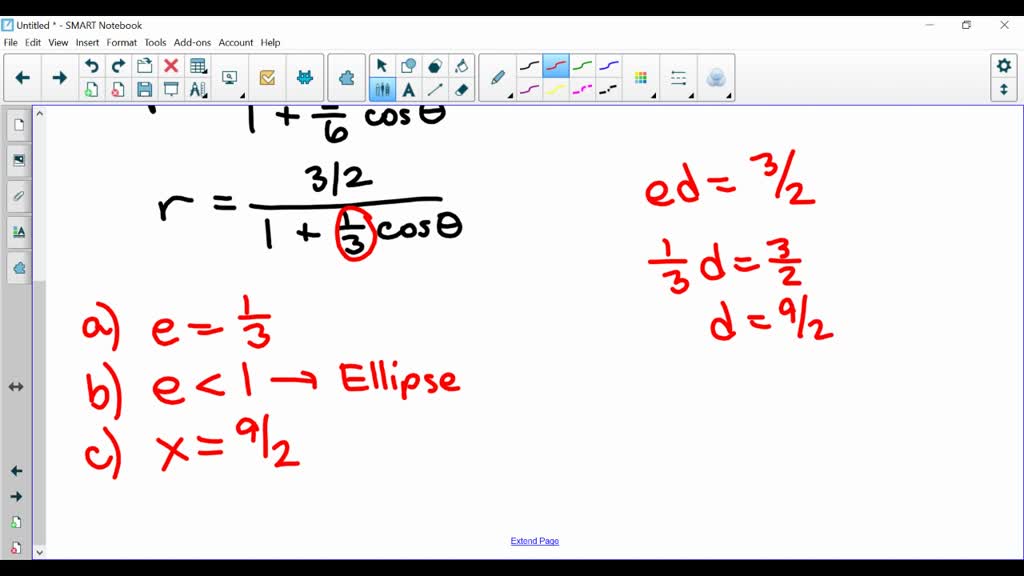 Untitled * - SMART Notebook
File Edit View Insert Format Tools Add-ons Account Help
1 + /6 cosθ
r = 3/2 / (1 + 1/3 cosθ)
ed = 3/2
1/3 d = 3/2
d = 9/2
a) e = 1/3
b) e < 1 → Ellipse
c) x = 9/2
Extend Page